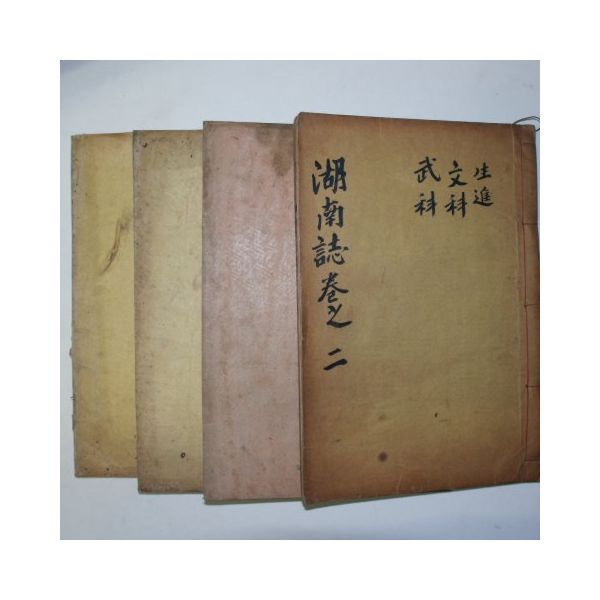 生進
文科
武科
湖南誌卷之二